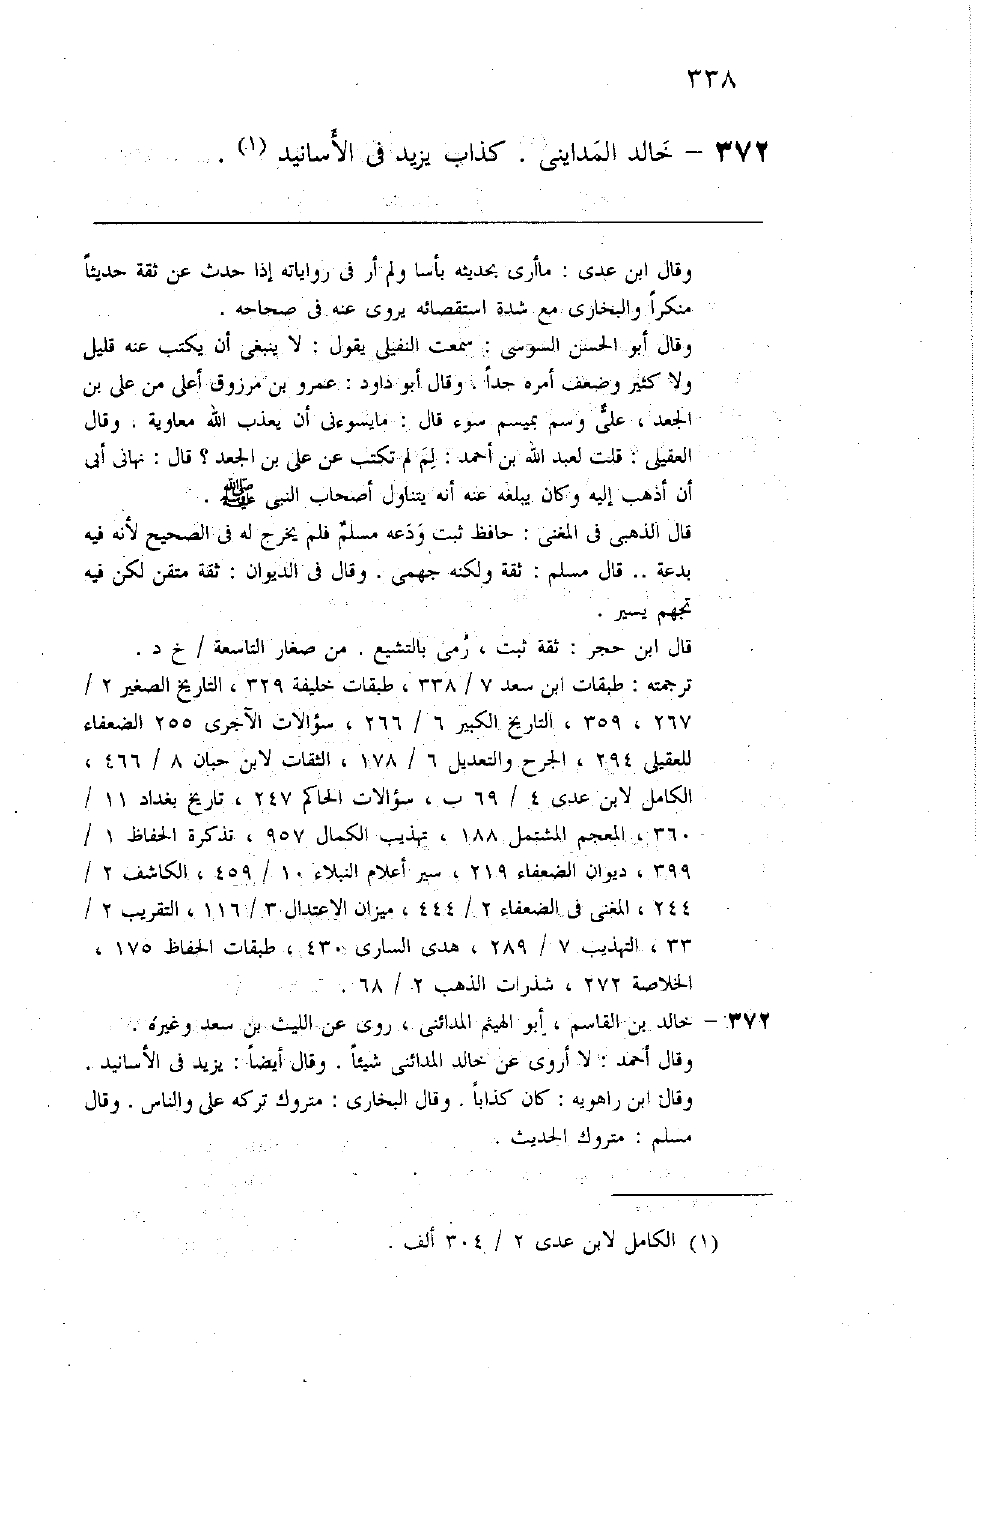 ٣٣٨
٣٧٢ – خَالد المَداينى . كذاب يزيد فى الأَسانيد (١) .
وقال ابن عدى : ماأرى بحديثه بأسا ولم أر فى رواياته إذا حدث عن ثقة حديثاً
منكراً والبخارى مع شدة استقصائه يروى عنه فى صحاحه .
وقال أبو الحسن السوسى : سمعت النفيلى يقول : لا ينبغى أن يكتب عنه قليل
ولا كثير وضعف أمره جداً . وقال أبو داود : عمرو بن مرزوق أعلى من على بن
الجعد ، علىٌّ وسم بميسم سوء قال : مايسوءنى أن يعذب الله معاوية . وقال
العقيلى : قلت لعبد الله بن أحمد : لِمَ لم تكتب عن على بن الجعد ؟ قال : نهانى أبى
أن أذهب إليه وكان يبلغه عنه أنه يتناول أصحاب النبى ﷺ .
قال الذهبى فى المغنى : حافظ ثبت وَدَعه مسلمٌ فلم يخرج له فى الصحيح لأنه فيه
بدعة .. قال مسلم : ثقة ولكنه جهمى . وقال فى الديوان : ثقة متقن لكن فيه
تجهم يسير .
قال ابن حجر : ثقة ثبت ، رُمى بالتشيع . من صغار التاسعة / خ د .
ترجمته : طبقات ابن سعد ٧ / ٣٣٨ ، طبقات خليفة ٣٢٩ ، التاريخ الصغير ٢ /
٢٦٧ ، ٣٥٩ ، التاريخ الكبير ٦ / ٢٦٦ ، سؤالات الآجرى ٢٥٥ الضعفاء
للعقيلى ٢٩٤ ، الجرح والتعديل ٦ / ١٧٨ ، الثقات لابن حبان ٨ / ٤٦٦ ،
الكامل لابن عدى ٤ / ٦٩ ب ، سؤالات الحاكم ٢٤٧ ، تاريخ بغداد ١١ /
٣٦٠ ، المعجم المشتمل ١٨٨ ، تهذيب الكمال ٩٥٧ ، تذكرة الحفاظ ١ /
٣٩٩ ، ديوان الضعفاء ٢١٩ ، سير أعلام النبلاء ١٠ / ٤٥٩ ، الكاشف ٢ /
٢٤٤ ، المغنى فى الضعفاء ٢ / ٤٤٤ ، ميزان الاعتدال ٣ / ١١٦ ، التقريب ٢ /
٣٣ ، التهذيب ٧ / ٢٨٩ ، هدى السارى ٤٣٠ ، طبقات الحفاظ ١٧٥ ،
الخلاصة ٢٧٢ ، شذرات الذهب ٢ / ٦٨ .
٣٧٢ – خالد بن القاسم ، أبو الهيثم المدائنى ، روى عن الليث بن سعد وغيره .
وقال أحمد : لا أروى عن خالد المدائنى شيئاً . وقال أيضاً : يزيد فى الأسانيد .
وقال ابن راهويه : كان كذاباً . وقال البخارى : متروك تركه على والناس . وقال
مسلم : متروك الحديث .
(١) الكامل لابن عدى ٢ / ٣٠٤ ألف .